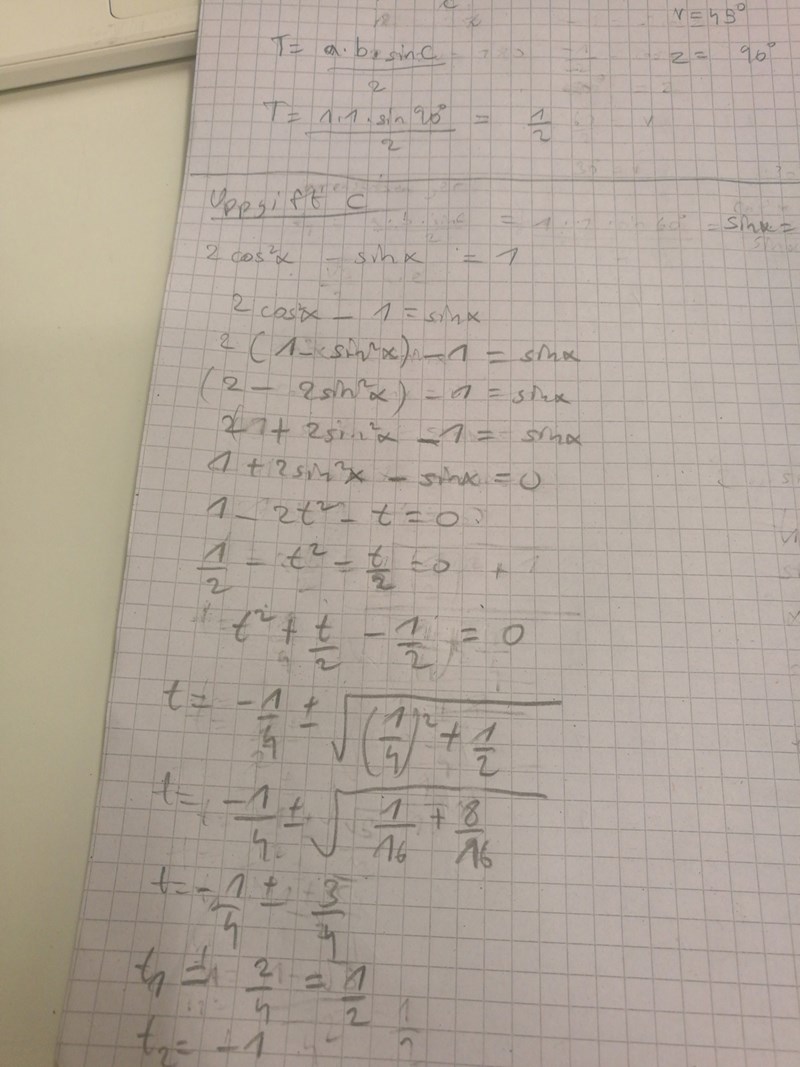 v = 45°
T = a·b·sinC / 2
z = 90°
T = 1·1·sin 90° / 2 = 1/2
Uppgift C
sinx =
2 cos²x - sinx = 1
2 cos²x - 1 = sinx
2 (1 - sin²x) - 1 = sinx
(2 - 2sin²x) - 1 = sinx
1 + 2sin²x - 1 = sinx
1 + 2sin²x - sinx = 0
1 - 2t² - t = 0
1/2 - t² - t/2 = 0
t² + t/2 - 1/2 = 0
t = -1/4 ± √((1/4)² + 1/2)
t = -1/4 ± √(1/16 + 8/16)
t = -1/4 ± 3/4
t₁ = 2/4 = 1/2
t₂ = -1